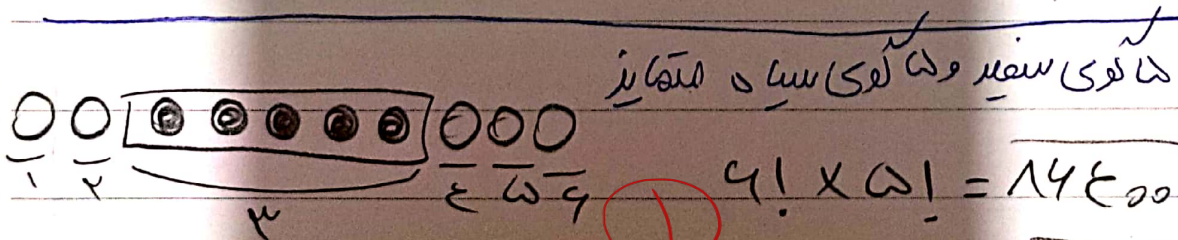 ۵ گوی سفید و ۵ گوی سیاه متمایز
۱ ۲ ۳ ۴ ۵ ۶
۶! × ۵! = ۸۶۴۰۰
۱